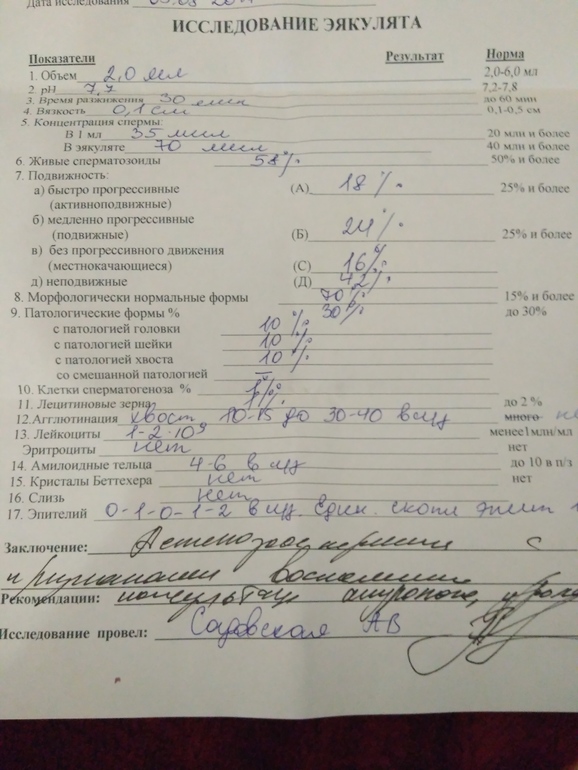 Дата исследования
ИССЛЕДОВАНИЕ ЭЯКУЛЯТА
Показатели Результат Норма
1. Объем 2,0 мл 2,0-6,0 мл
2. рН 7,7 7,2-7,8
3. Время разжижения 30 мин до 60 мин
4. Вязкость 0,1 см 0,1-0,5 см
5. Концентрация спермы:
В 1 мл 35 млн 20 млн и более
В эякуляте 70 млн 40 млн и более
6. Живые сперматозоиды 58% 50% и более
7. Подвижность:
а) быстро прогрессивные (А) 18% 25% и более
(активноподвижные)
б) медленно прогрессивные
(подвижные) (Б) 24% 25% и более
в) без прогрессивного движения
(местнокачающиеся) (С) 16%
д) неподвижные (Д) 42%
8. Морфологически нормальные формы 70% 15% и более
9. Патологические формы % 30% до 30%
с патологией головки 10%
с патологией шейки 10%
с патологией хвоста 10%
со смешанной патологией –
10. Клетки сперматогеноза % 1% до 2 %
11. Лецитиновые зерна много
12.Агглютинация хвост 10-15 до 30-40 в п/з
13. Лейкоциты 1-2·10⁹ менее1млн/мл
Эритроциты нет нет
14. Амилоидные тельца 4-6 в п/з до 10 в п/з
15. Кристалы Беттехера нет нет
16. Слизь нет
17. Эпителий 0-1-0-1-2 в п/з един. скопл эпит
Заключение: Астенозооспермия с
признаками воспаления
Рекомендации: консультация андролога,
Исследование провел: Садовская АВ